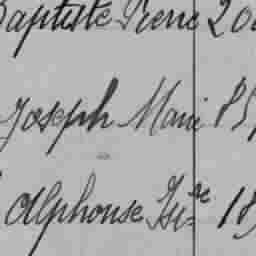 Baptiste Pierre 20
Joseph Marie 85
Alphonse 18